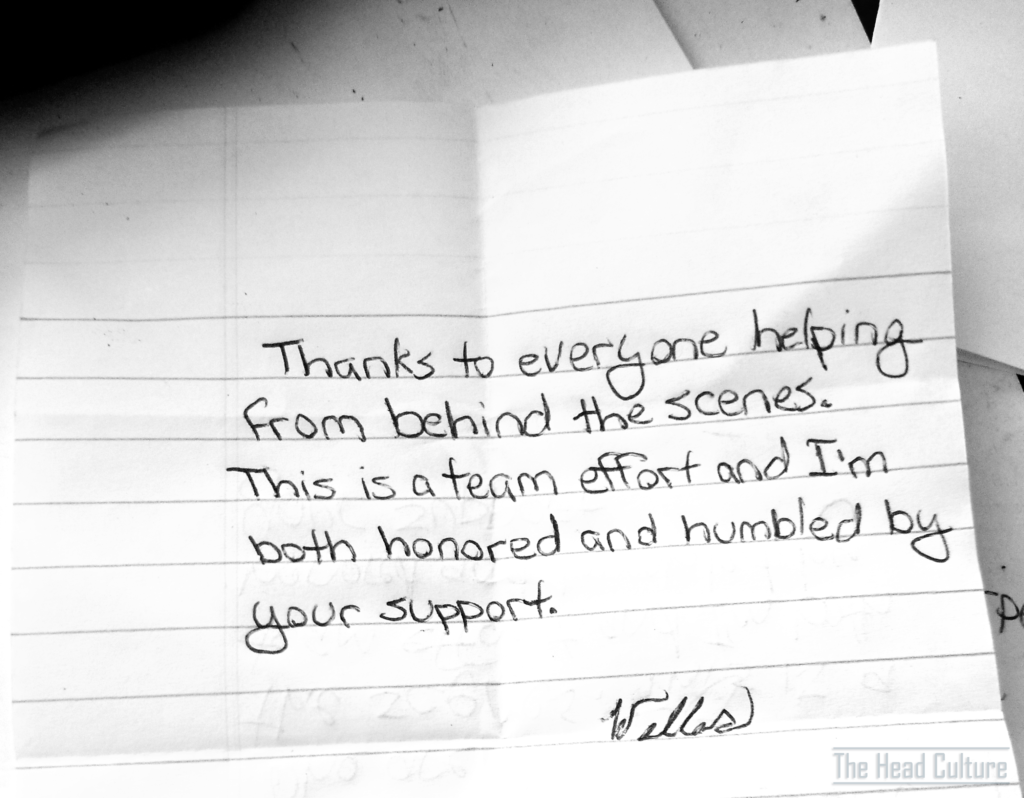 Thanks to everyone helping
from behind the scenes.
This is a team effort and I'm
both honored and humbled by
your support.
The Head Culture